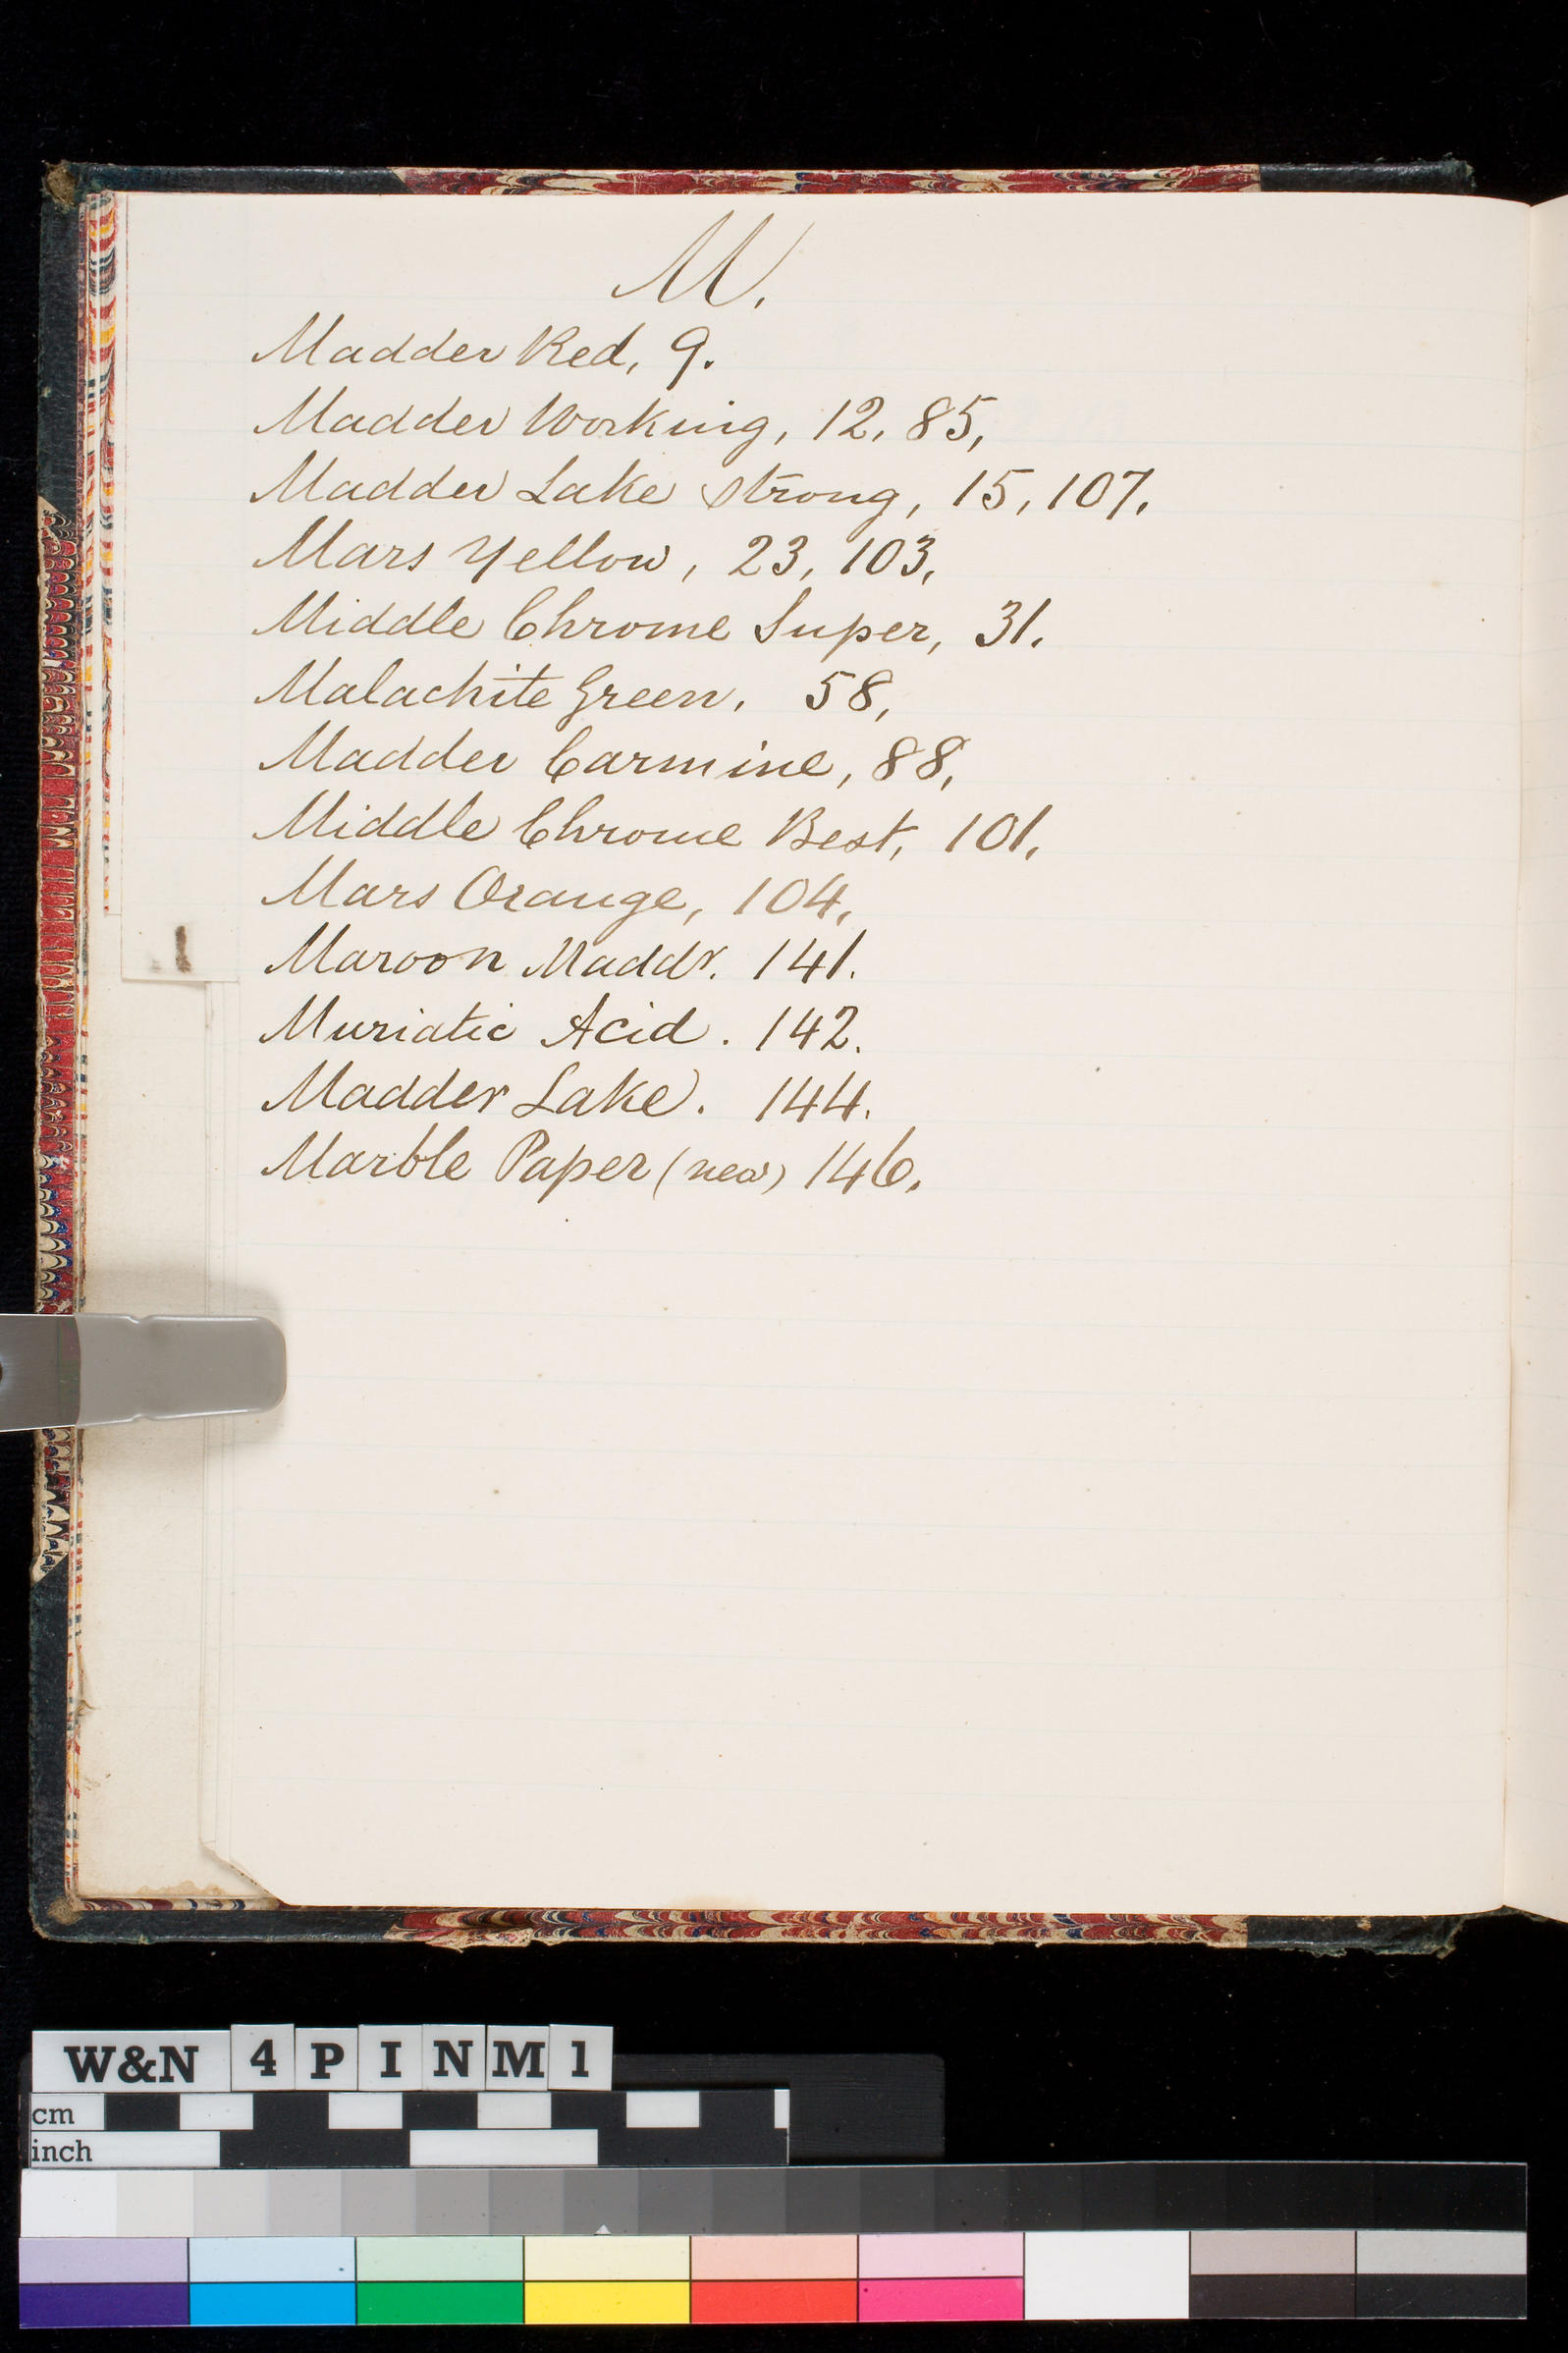 M.
Madder Red, 9.
Madder Working, 12, 85,
Madder Lake strong, 15, 107.
Mars Yellow, 23, 103,
Middle Chrome Super, 31.
Malachite Green, 58,
Madder Carmine, 88,
Middle Chrome Best, 101,
Mars Orange, 104,
Maroon Maddr. 141.
Muriatic Acid. 142.
Madder Lake. 144.
Marble Paper (new) 146.
W&N 4 P I N M 1
cm
inch